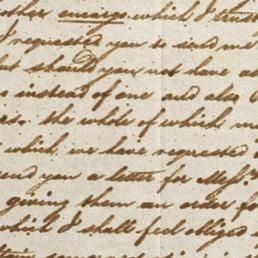 other encargo which I trust
I requested you to send me
but should you not have a
s instead of one and also
rs. the whole of which m
which we have requested
send you a letter for Messrs.
giving them an order fo
which I shall feel obliged